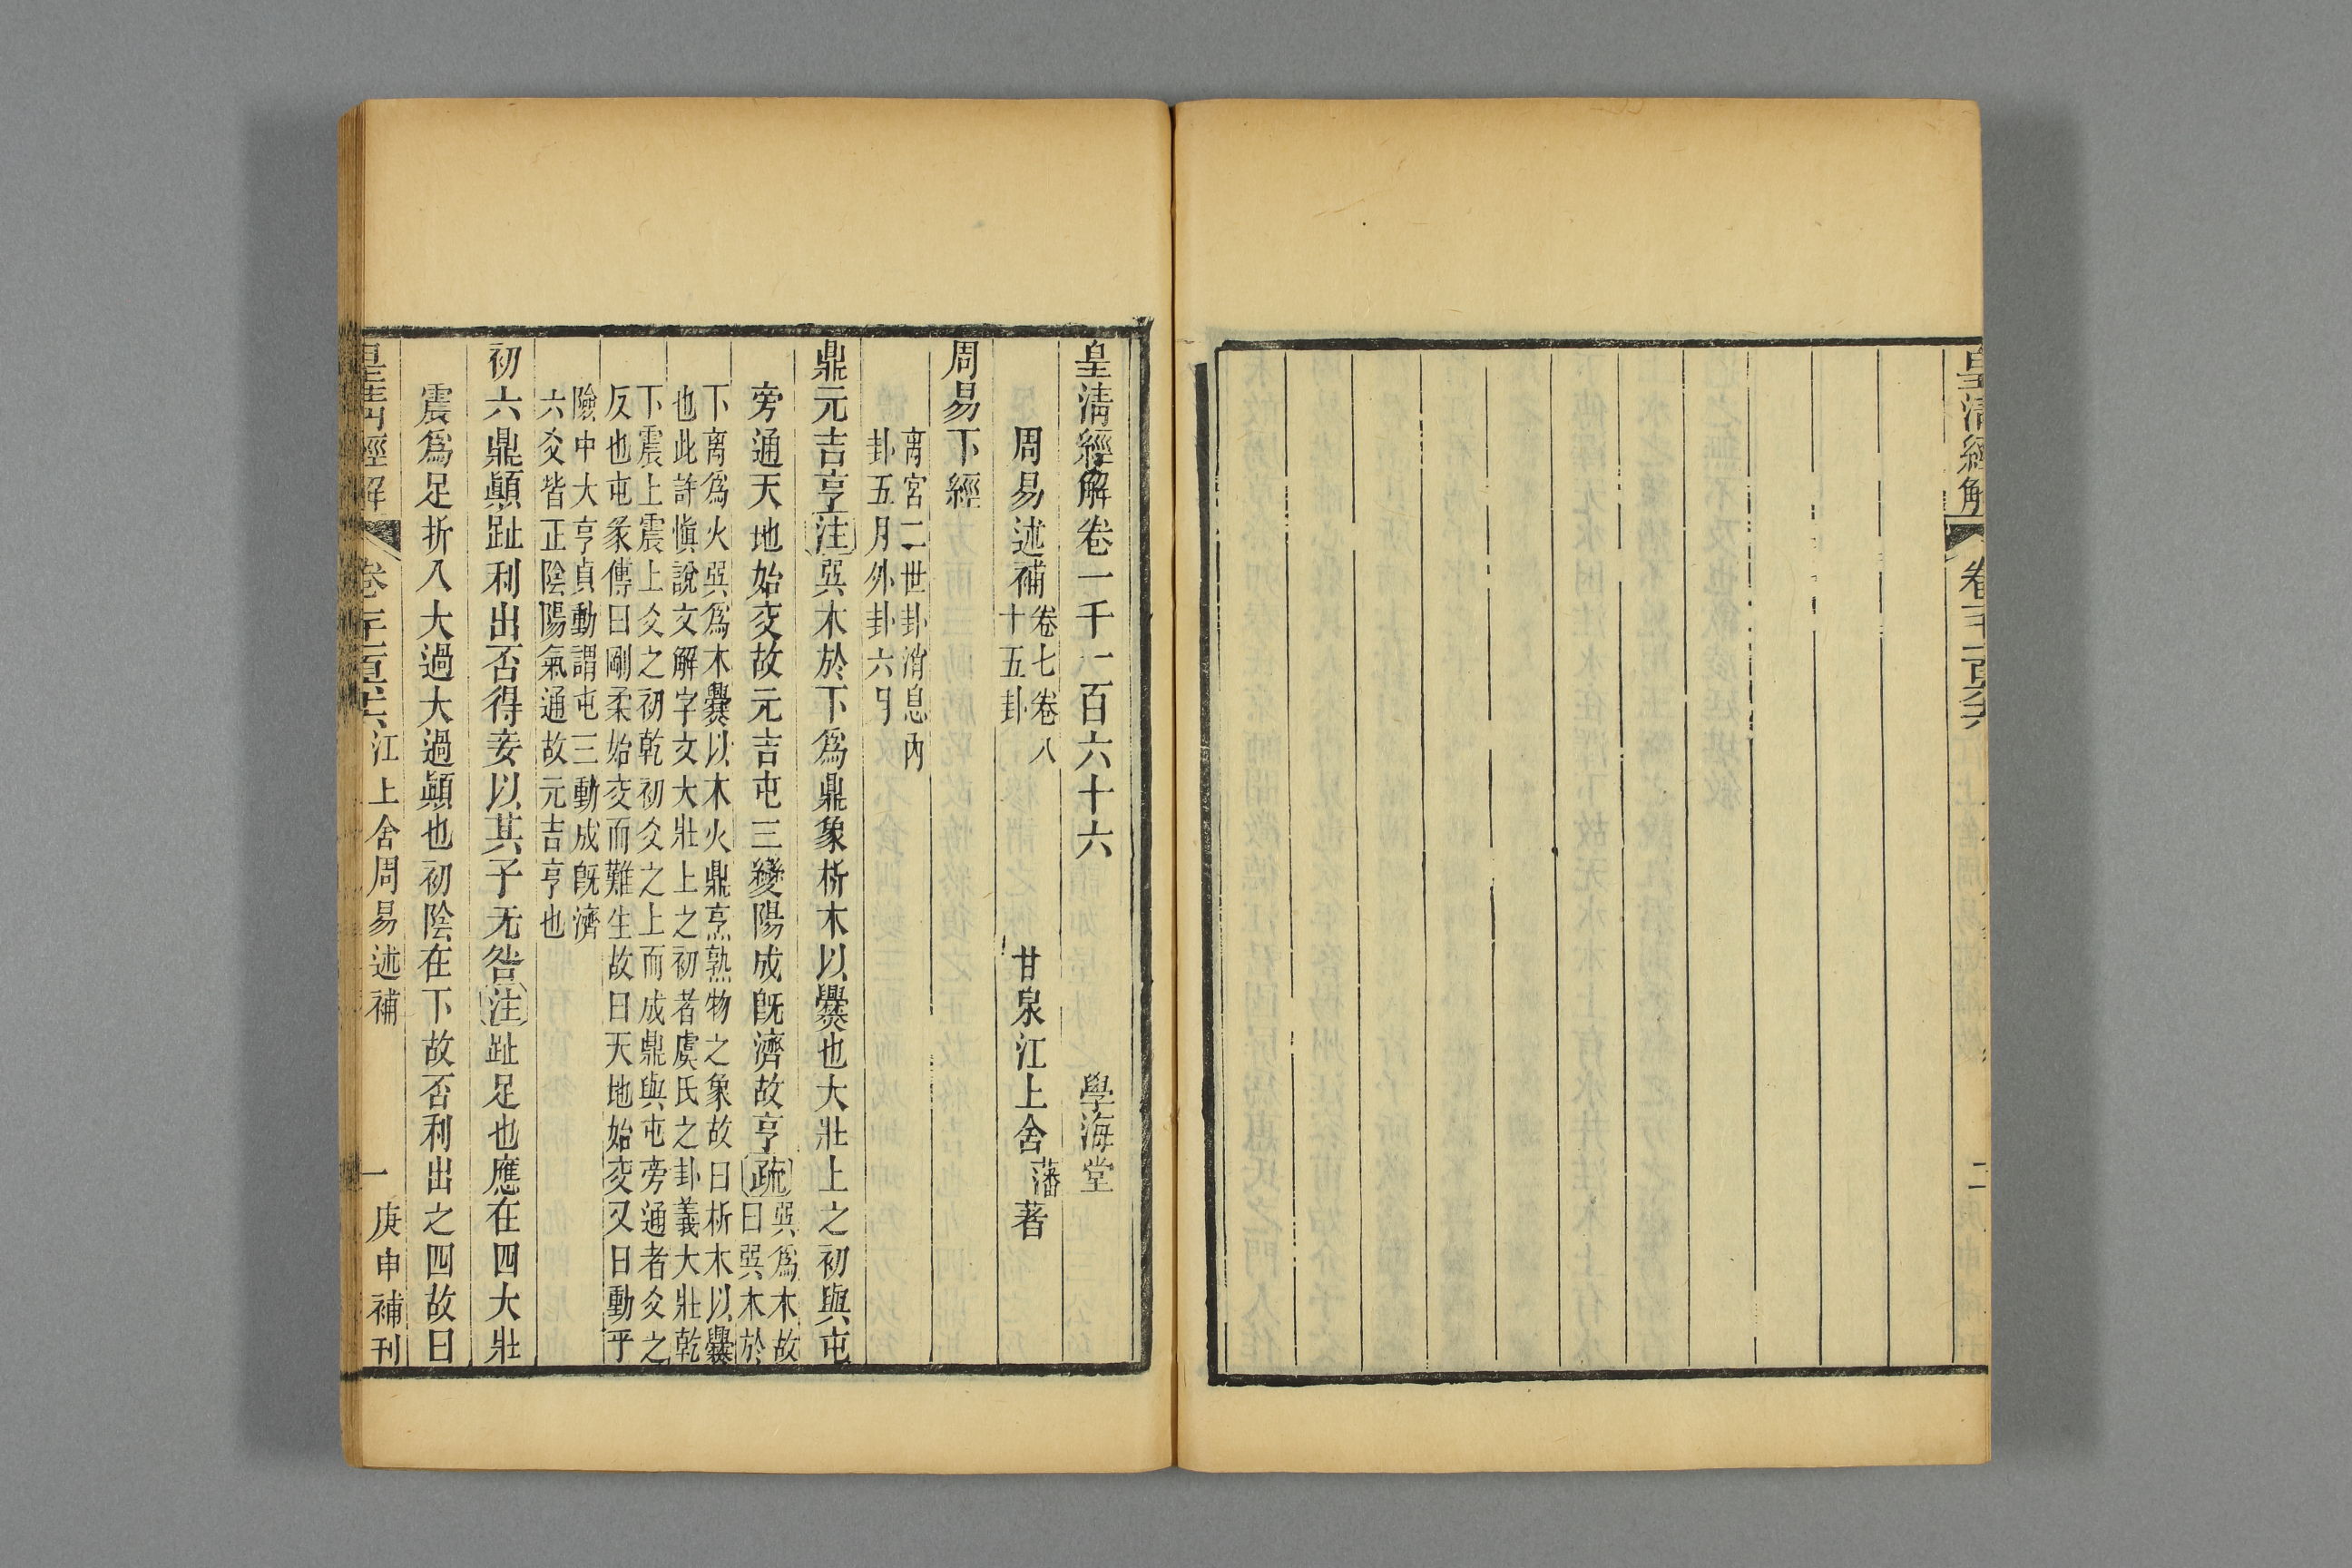 皇清經解
卷千一百六十六
二
皇清經解卷一千一百六十六
學海堂
周易述補卷七卷八
十五卦
甘泉江上舍藩著
周易下經
离宮二世卦消息內
卦五月外卦六月
鼎元吉亨注巽木於下爲鼎象析木以爨也大壯上之初與屯
旁通天地始交故元吉屯三變陽成旣濟故亨疏巽爲木故
曰巽木於
下离爲火巽爲木爨以木火鼎亨熟物之象故曰析木以爨
也此許愼說文解字文大壯上之初者虞氏之卦義大壯乾
下震上震上爻之初乾初爻之上而成鼎與屯旁通者爻之
反也屯彖傳曰剛柔始交而難生故曰天地始交又曰動乎
險中大亨貞動謂屯三動成旣濟
六爻皆正陰陽氣通故元吉亨也
初六鼎顚趾利出否得妾以其子无咎注趾足也應在四大壯
震爲足折入大過大過顚也初陰在下故否利出之四故曰
皇淸經解
江上舍周易述補
一
庚申補刊